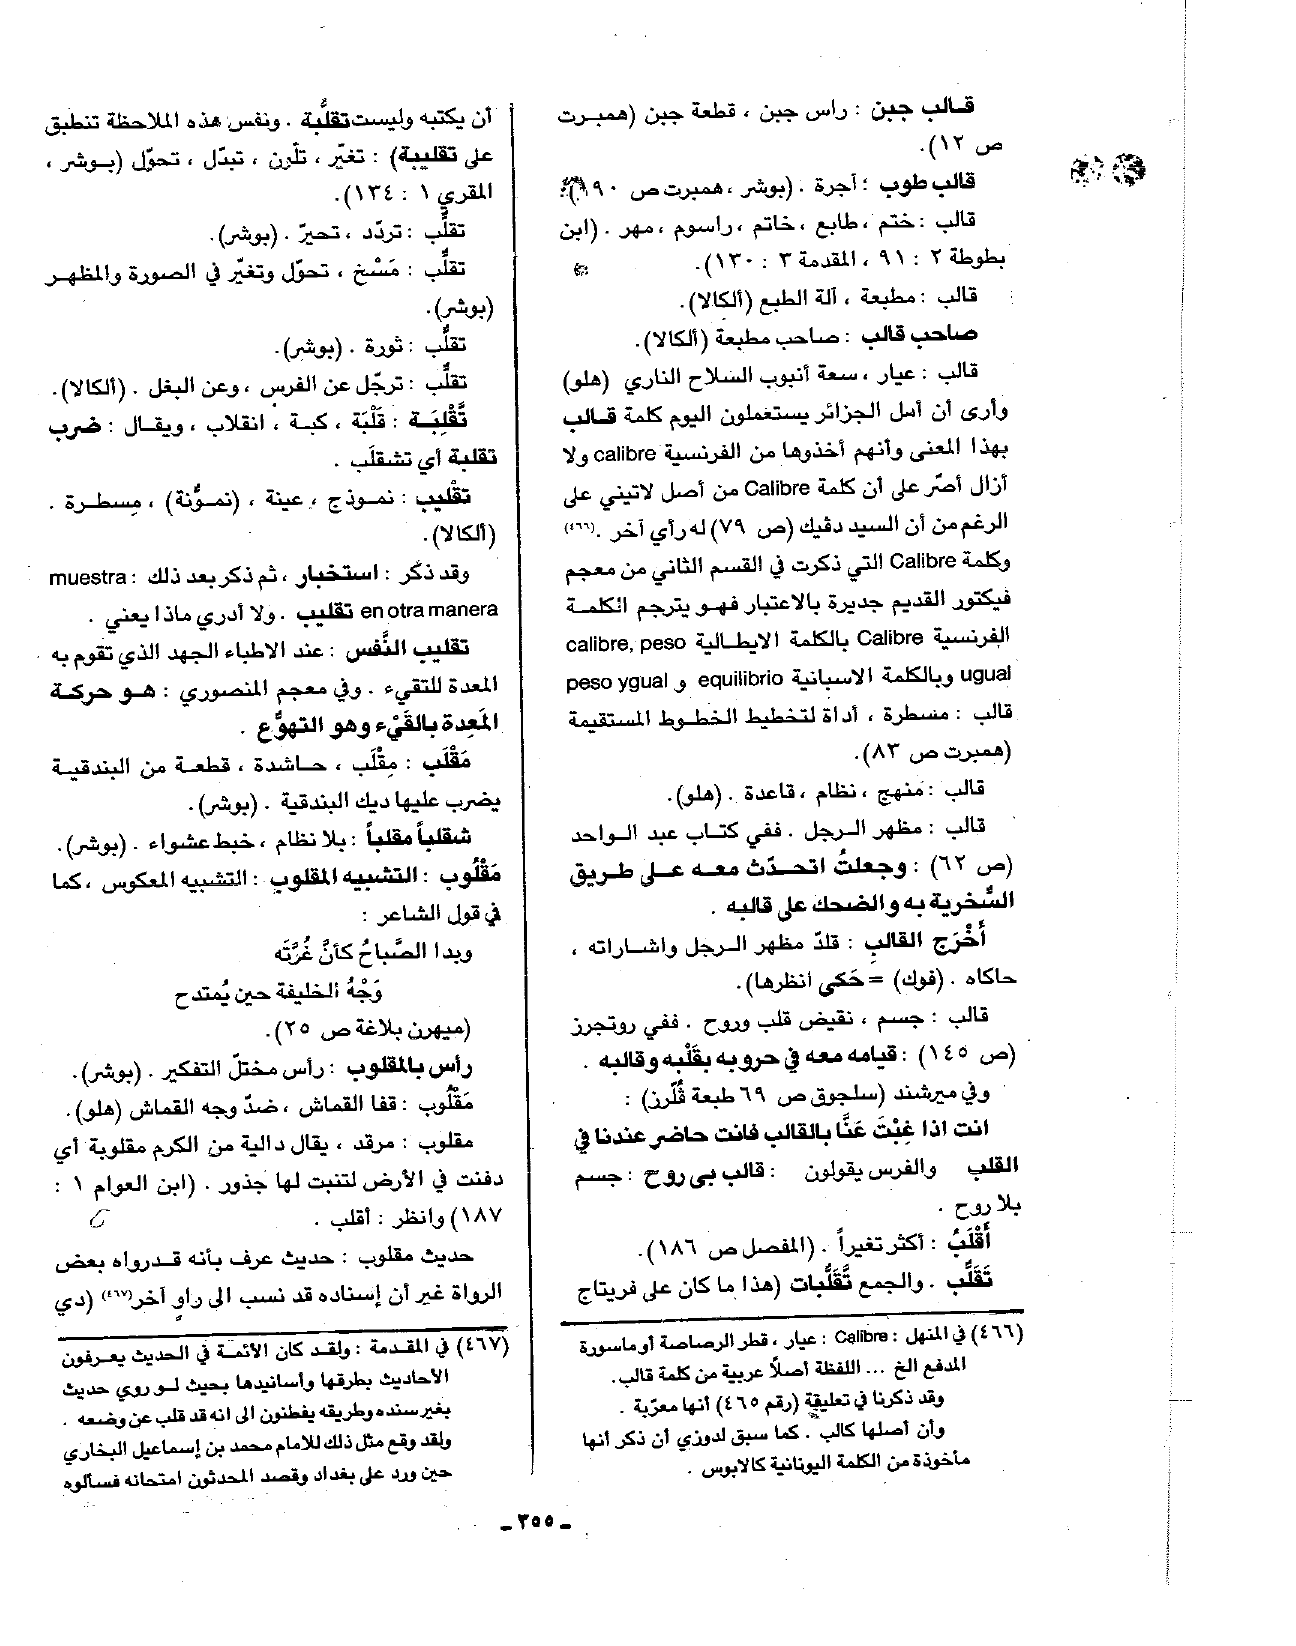 قالب جبن : راس جبن ، قطعة جبن (همبرت
ص ١٢).
قالب طوب : أجرة . (بوشر ، همبرت ص ١٩٠).
قالب : ختم ، طابع ، خاتم ، راسوم ، مهر . (ابن
بطوطة ٢ : ٩١ ، المقدمة ٣ : ١٣٠).
قالب : مطبعة ، آلة الطبع (ألكالا).
صاحب قالب : صاحب مطبعة (ألكالا).
قالب : عيار ، سعة أنبوب السلاح الناري (هلو)
وأرى أن أهل الجزائر يستعملون اليوم كلمة قالب
بهذا المعنى وأنهم أخذوها من الفرنسية calibre ولا
أزال أصّر على أن كلمة Calibre من أصل لاتيني على
الرغم من أن السيد دڤيك (ص ٧٩) له رأي آخر .(٤٦٦)
وكلمة Calibre التي ذكرت في القسم الثاني من معجم
فيكتور القديم جديرة بالاعتبار فهو يترجم الكلمة
الفرنسية Calibre بالكلمة الايطالية calibre, peso
ugual وبالكلمة الاسبانية equilibrio و peso ygual
قالب : مسطرة ، أداة لتخطيط الخطوط المستقيمة
(همبرت ص ٨٣).
قالب : منهج ، نظام ، قاعدة . (هلو).
قالب : مظهر الرجل . ففي كتاب عبد الواحد
(ص ٦٢) : وجعلتُ اتحدّث معه على طريق
السُّخرية به والضحك على قالبه .
أَخْرَج القالب : قلدّ مظهر الرجل واشاراته ،
حاكاه . (فوك) = حَكي أنظرها).
قالب : جسم ، نقيض قلب وروح . ففي روتجرز
(ص ١٤٥) : قيامه معه في حروبه بقَلْبه وقالبه .
وفي ميرشند (سلجوق ص ٦٩ طبعة ڤُلّرز) :
انت اذا غِبْتَ عَنَّا بالقالب فانت حاضر عندنا في
القلب والفرس يقولون : قالب بى روح : جسم
بلا روح .
أَقْلَبُ : أكثر تغيراً . (المفصل ص ١٨٦).
تَقَلُّب . والجمع تَقَلُّبات (هذا ما كان على فريتاج
(٤٦٦) في المنهل : Calibre : عيار ، قطر الرصاصة أو ماسورة
المدفع الخ ... اللفظة أصلاً عربية من كلمة قالب.
وقد ذكرنا في تعليقة (رقم ٤٦٥) أنها معرّبة .
وأن أصلها كالب . كما سبق لدوزي أن ذكر أنها
مأخوذة من الكلمة اليونانية كالابوس .
أن يكتبه وليست تقلُّبة . ونفس هذه الملاحظة تنطبق
على تقليبة) : تغيّر ، تلّون ، تبدّل ، تحوّل (بوشر ،
المقري ١ : ١٣٤).
تقلُّب : تردّد ، تحيرّ . (بوشر).
تقلُّب : مَسْخ ، تحوّل وتغيّر في الصورة والمظهر
(بوشر).
تقلُّب : ثورة . (بوشر).
تقلُّب : ترجّل عن الفرس ، وعن البغل . (ألكالا).
تَقْلِبَة : قَلْبَة ، كبة ، انقلاب ، ويقال : ضرب
تقلبة أي تشقلَب .
تقْليب : نموذج ، عينة ، (نموُّنة) ، مسطرة .
(ألكالا).
وقد ذكّر : استخبار ، ثم ذكر بعد ذلك : muestra
en otra manera تقليب . ولا أدري ماذا يعني .
تقليب النَّفس : عند الاطباء الجهد الذي تقوم به
المعدة للتقيء . وفي معجم المنصوري : هو حركة
المَعِدة بالقَيْء وهو التهوُّع .
مَقْلَب : مِقْلَب ، حاشدة ، قطعة من البندقية
يضرب عليها ديك البندقية . (بوشر).
شقلباً مقلباً : بلا نظام ، خبط عشواء . (بوشر).
مَقْلُوب : التشبيه المقلوب : التشبيه المعكوس ، كما
في قول الشاعر :
وبدا الصَّباحُ كأنَّ غُرَّتَه
وَجْهُ الخليفة حين يُمتدح
(ميهرن بلاغة ص ٢٥).
رأس بالمقلوب : رأس مختلّ التفكير . (بوشر).
مَقْلُوب : قفا القماش ، ضدّ وجه القماش (هلو).
مقلوب : مرقد ، يقال دالية من الكرم مقلوبة أي
دفنت في الأرض لتنبت لها جذور . (ابن العوام ١ :
١٨٧) وانظر : أقلب .
حديث مقلوب : حديث عرف بأنه قد رواه بعض
الرواة غير أن إسناده قد نسب الى راوٍ آخر(٤٦٧) (دي
(٤٦٧) في المقدمة : ولقد كان الأئمة في الحديث يعرفون
الأحاديث بطرقها وأسانيدها بحيث لو روي حديث
بغير سنده وطريقه يفطنون الى انه قد قلب عن وضعه .
ولقد وقع مثل ذلك للامام محمد بن إسماعيل البخاري
حين ورد على بغداد وقصد المحدثون امتحانه فسألوه
ـ ٣٥٥ ـ